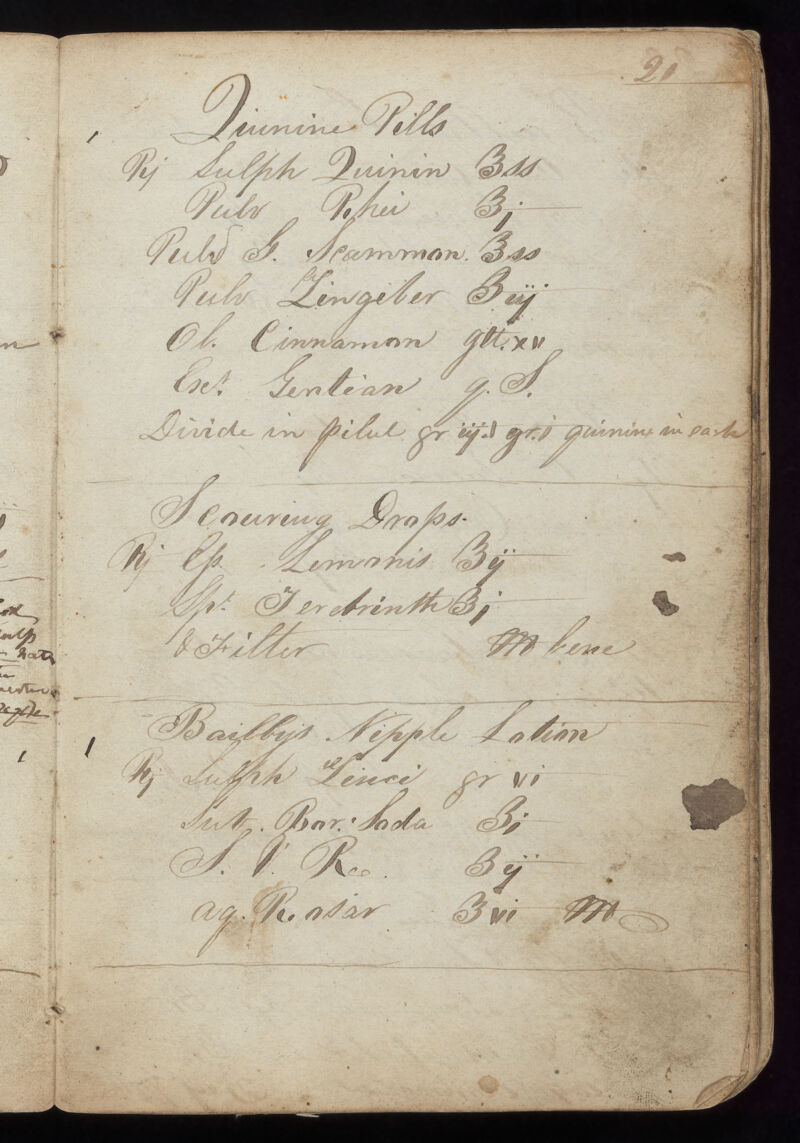 21
Quinine Pills
℞ Sulph Quinin ʒss
Pulv Rhei ʒj
Pulv G. Scammon. ʒss
Pulv Zingiber ʒiij
Ol. Cinnamon gtt. xv
Ext Gentian q. S.
Divide in pilul gr iij. gr. i quinine in each
Scouring Drops.
℞ Ep. Lemonis ʒij
Spt Terebinth ʒj
& Filter M bene
Bailbys Nipple Lotion
℞ Sulph Zinci gr vi
Sub. Bor. Soda ʒi
S. V. R ʒij
aq. Rosar ʒvi M